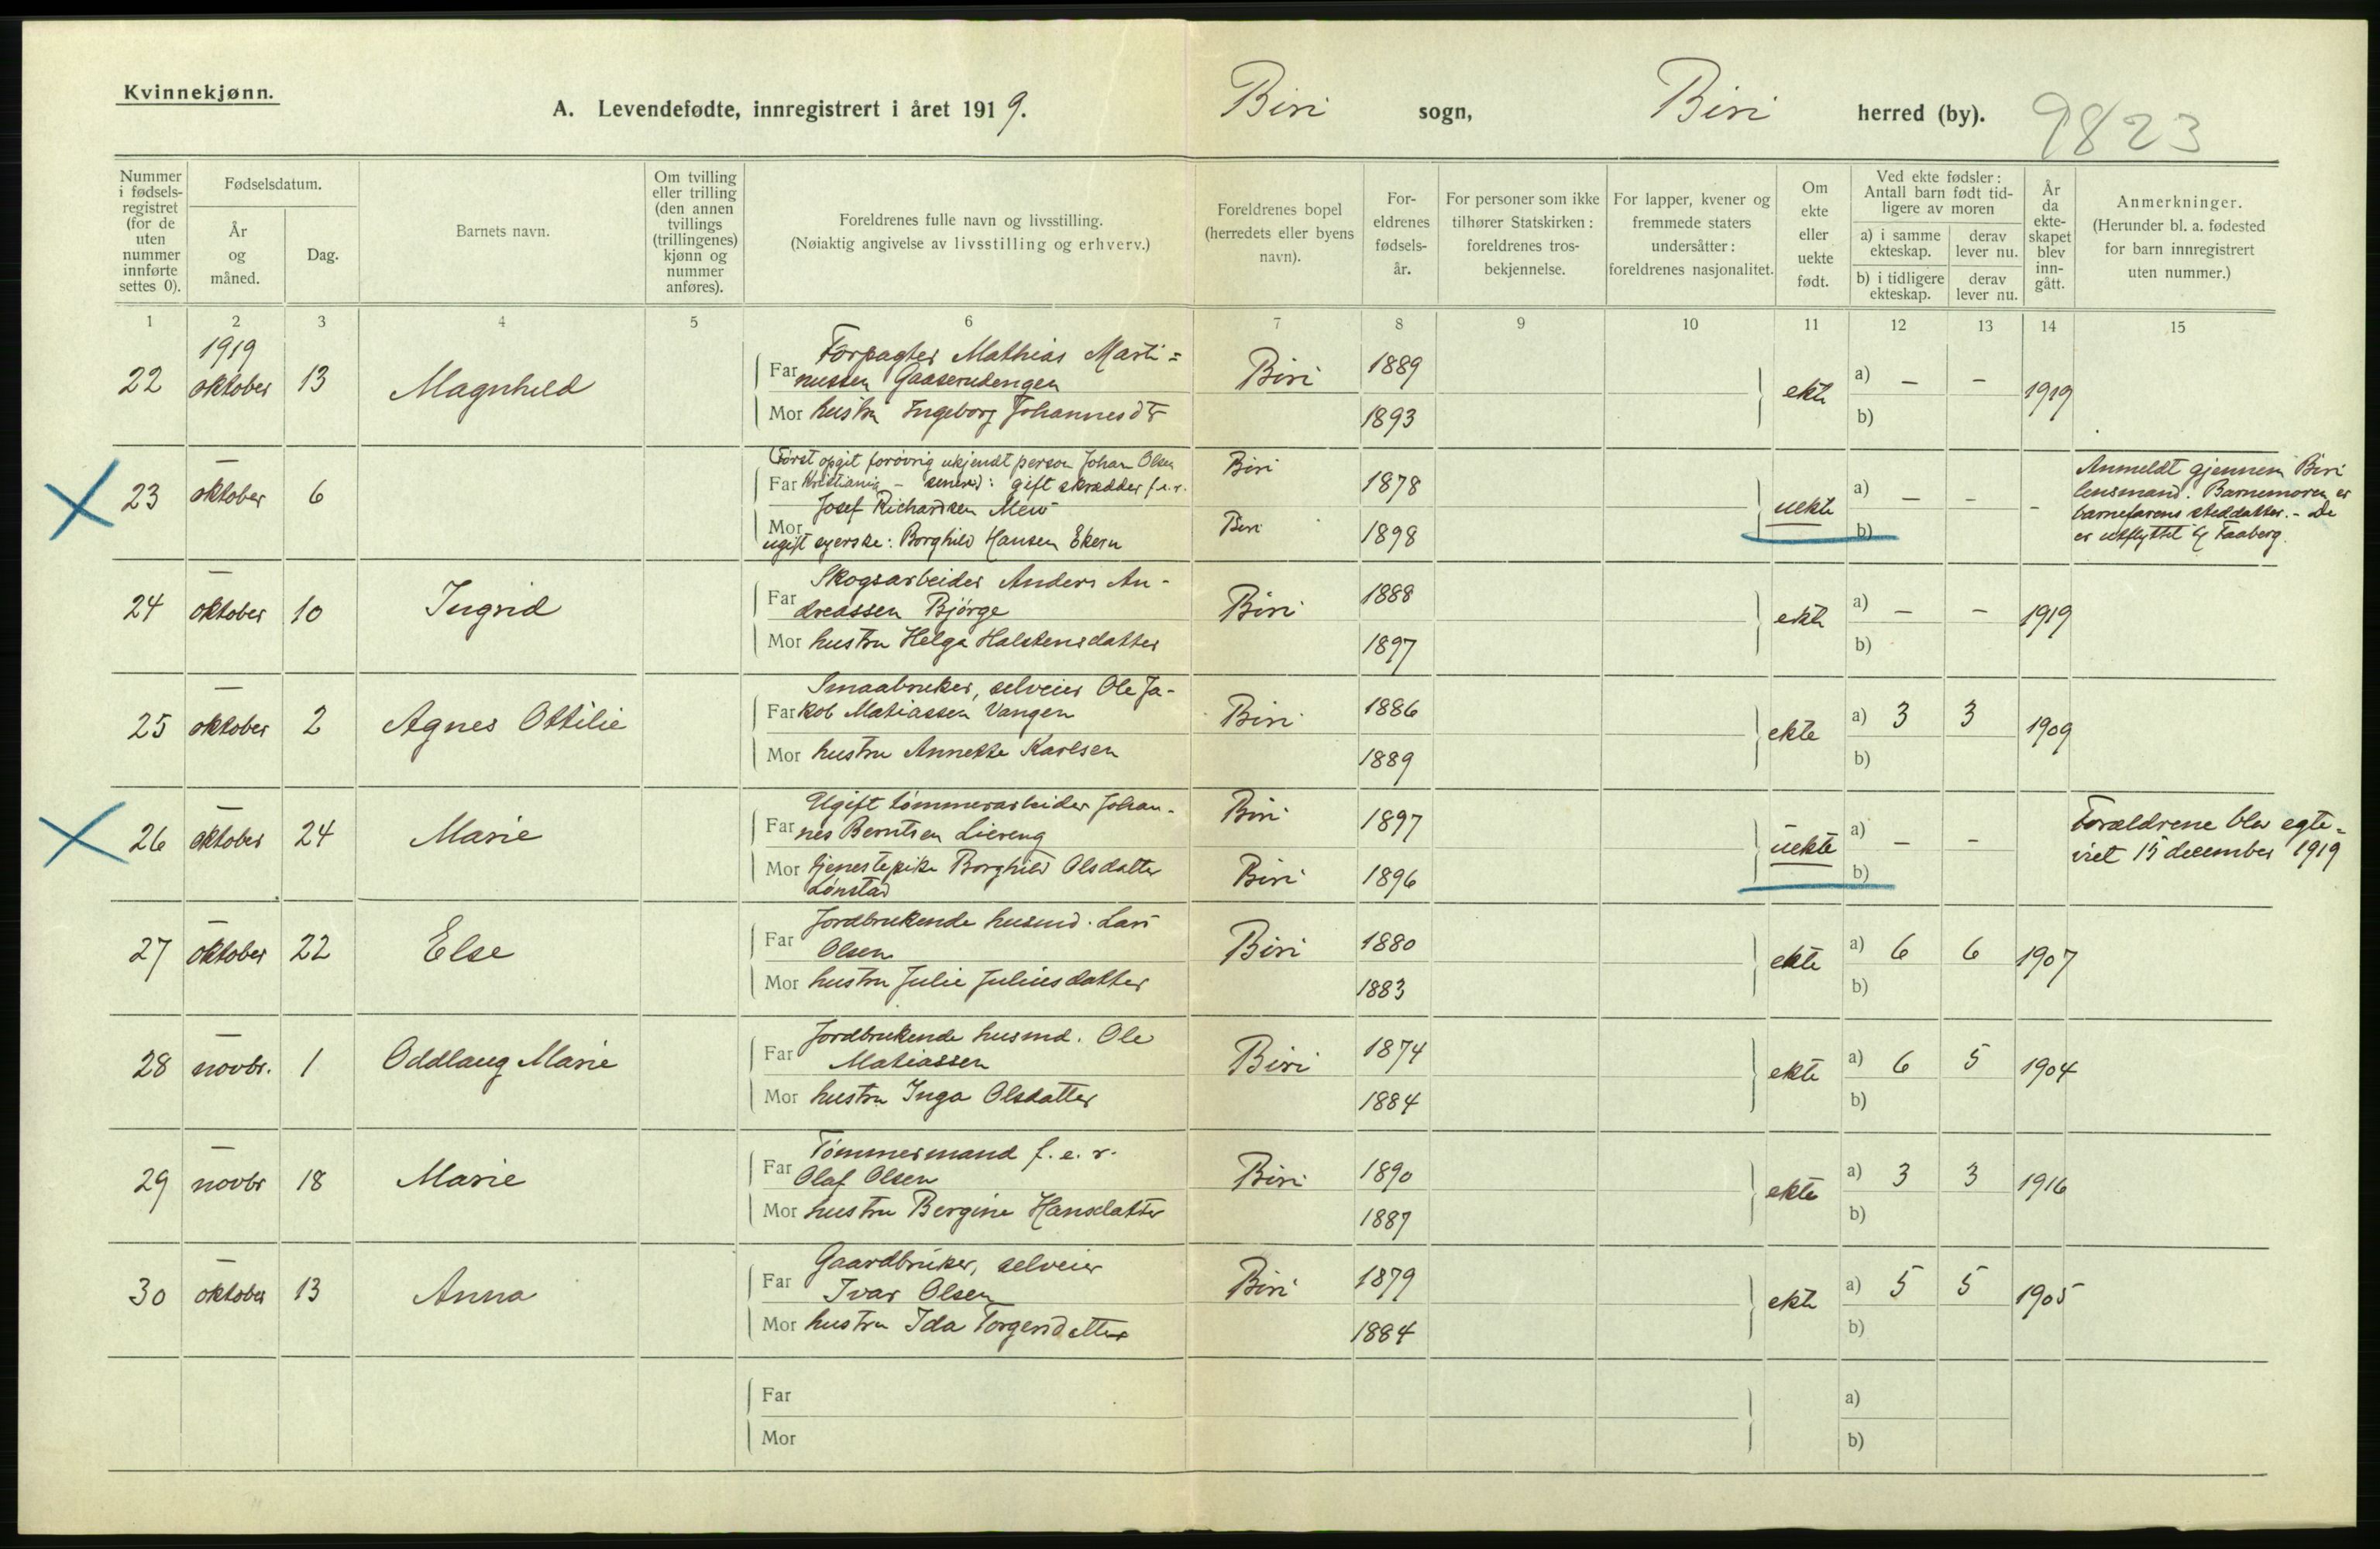 Kvinnekjønn.
A. Levendefødte, innregistrert i året 1919. Biri sogn, Biri herred (by). 9823
Nummer i fødsels- registret (for de uten nummer innførte settes 0).
Fødselsdatum.
År og måned.
Dag.
Barnets navn.
Om tvilling eller trilling (den annen tvillings (trillingenes) kjønn og nummer anføres).
Foreldrenes fulle navn og livsstilling.
(Nøiaktig angivelse av livsstilling og erhverv.)
Foreldrenes bopel (herredets eller byens navn).
For- eldrenes fødsels- år.
For personer som ikke tilhører Statskirken: foreldrenes tros- bekjennelse.
For lapper, kvener og fremmede staters undersåtter: foreldrenes nasjonalitet.
Om ekte eller uekte født.
Ved ekte fødsler: Antall barn født tid- ligere av moren
a) i samme ekteskap.
derav lever nu.
b) i tidligere ekteskap.
derav lever nu.
År da ekte- skapet blev inn- gått.
Anmerkninger.
(Herunder bl. a. fødested for barn innregistrert uten nummer.)
1 2 3 4 5 6 7 8 9 10 11 12 13 14 15
1919
22 oktober 13 Magnhild
Forpagter Mathias Marti=
Far nussen Gaaserudengen Biri 1889
Mor hustru Ingeborg Johannesdtr 1893
ekte a) – – 1919
b)
– 23 oktober 6
Først opgit forøvrig ukjendt person Johan Olsen
Far Kristiania – senere: gift skrædder f.e.r. Biri 1878
Josef Richardsen Mew
Mor
ugift syerske: Borghild Hansen Ekern Biri 1898
uekte a) – – -
b)
Anmeldt gjennem Biri
lensmand. Barnemoren er
barnefarens steddatter. – De
er utflyttet til Faaberg.
– 24 oktober 10 Ingrid
Skogsarbeider Anders An-
Far dreassen Bjørge Biri 1888
Mor hustru Helga Halstensdatter 1897
ekte a) – – 1919
b)
– 25 oktober 2 Agnes Ottilie
Smaabruker, selveier Ole Ja-
Far kob Matiassen Vangen Biri 1886
Mor hustru Annette Karlsen 1889
ekte a) 3 3 1909
b)
– 26 oktober 24 Marie
Ugift tømmerarbeider Johan-
Far nes Berntsen Liereng Biri 1897
Mor tjenestepike Borghild Olsdatter Biri 1896
Lønstad
uekte a) – –
b)
Forældrene blev egte=
viet 15 december 1919
– 27 oktober 22 Else
Jordbrukende husmd. Lars
Far Olsen Biri 1880
Mor hustru Julie Juliusdatter 1883
ekte a) 6 6 1907
b)
– 28 novbr. 1 Oddlaug Marie
Jordbrukende husmd. Ole
Far Matiassen Biri 1874
Mor hustru Inga Olsdatter 1884
ekte a) 6 5 1904
b)
– 29 novbr 18 Marie
Tømmermand f.e.r.
Far Olaf Olsen Biri 1890
Mor hustru Bergine Hansdatter 1887
ekte a) 3 3 1916
b)
– 30 oktober 13 Anna
Gaardbruker, selveier
Far Ivar Olsen Biri 1879
Mor hustru Ida Torgersdatter 1884
ekte a) 5 5 1905
b)
Far a)
Mor b)